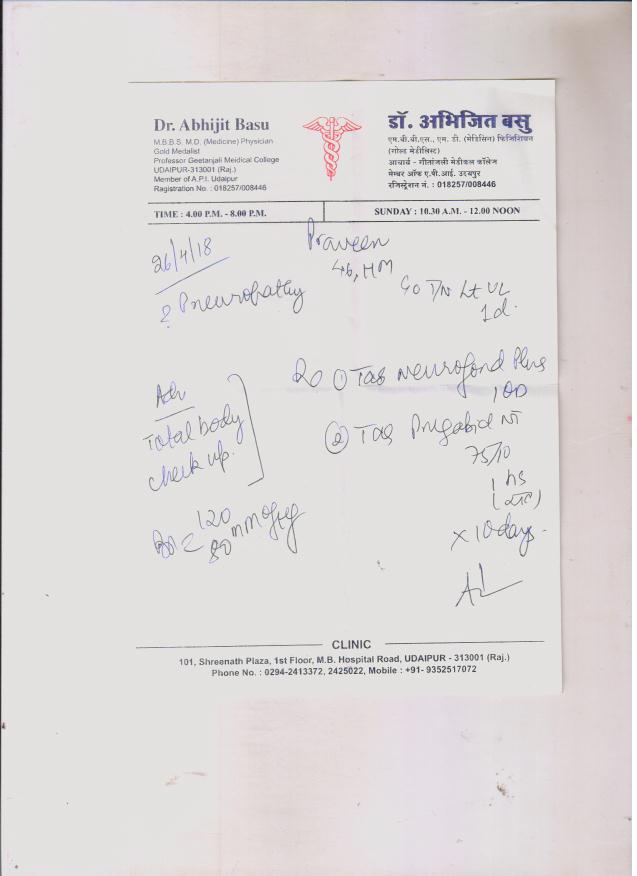 Dr. Abhijit Basu
M.B.B.S. M.D. (Medicine) Physician
Gold Medalist
Professor Geetanjali Meidical College
UDAIPUR-313001 (Raj.)
Member of A.P.I. Udaipur
Ragistration No. : 018257/008446
डॉ. अभिजित बसु
एम.बी.बी.एस., एम. डी. (मेडिसिन) फिजिशियन
(गोल्ड मेडीलिस्ट)
आचार्य - गीतांजली मेडीकल कॉलेज
मेम्बर ऑफ ए.पी.आई. उदयपुर
रजिस्ट्रेशन नं. : 018257/008446
TIME : 4.00 P.M. - 8.00 P.M.
SUNDAY : 10.30 A.M. - 12.00 NOON
26/4/18
Praveen
46, HM
? Pneuropathy
C/o T/N Lt UL
1d.
Adv
Total body
check up.
120
80 mmofHg
① Tab Neurofond Plus
1 OD
② Tab Pregabid NT
75/10
1 hs
x 10 days
CLINIC
101, Shreenath Plaza, 1st Floor, M.B. Hospital Road, UDAIPUR - 313001 (Raj.)
Phone No. : 0294-2413372, 2425022, Mobile : +91- 9352517072